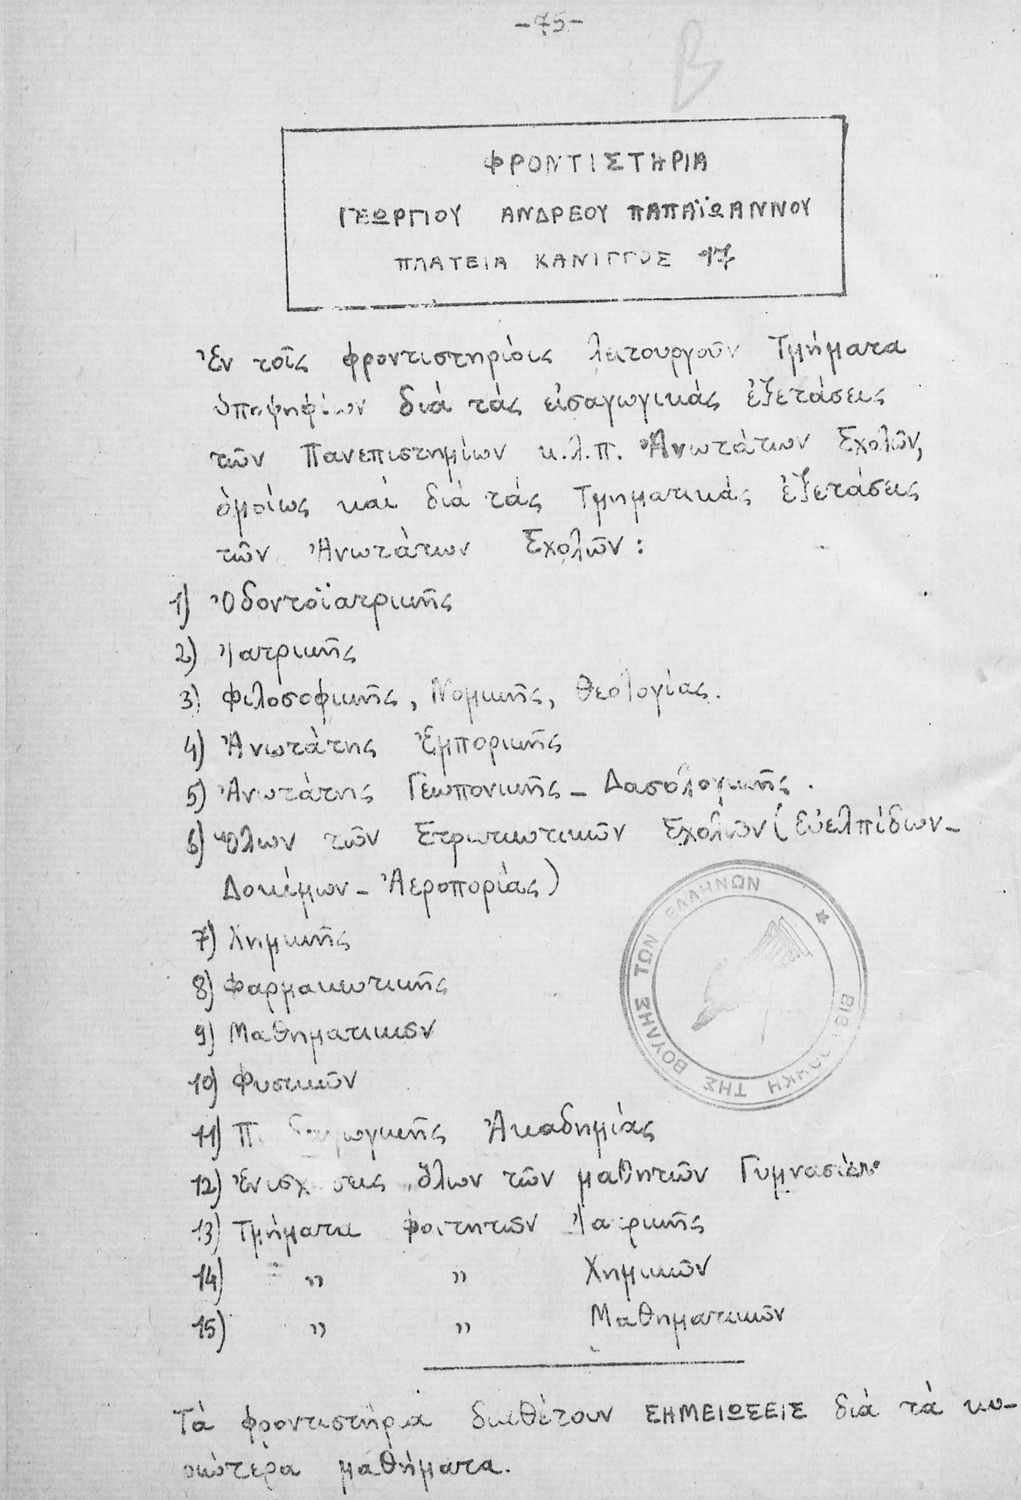 -75-
Β
ΦΡΟΝΤΙΣΤΗΡΙΑ
ΓΕΩΡΓΙΟΥ ΑΝΔΡΕΟΥ ΠΑΠΑΪΩΑΝΝΟΥ
ΠΛΑΤΕΙΑ ΚΑΝΙΓΓΟΣ 17
Ἐν τοῖς φροντιστηρίοις λειτουργοῦν Τμήματα
ὑποψηφίων διά τάς εἰσαγωγικάς ἐξετάσεις
τῶν Πανεπιστημίων κ.λ.π. Ἀνωτάτων Σχολῶν,
ὁμοίως καί διά τάς Τμηματικάς ἐξετάσεις
τῶν Ἀνωτάτων Σχολῶν:
1) Ὀδοντοϊατρικῆς
2) Ἰατρικῆς
3) Φιλοσοφικῆς, Νομικῆς, Θεολογίας.
4) Ἀνωτάτης Ἐμπορικῆς
5) Ἀνωτάτης Γεωπονικῆς - Δασολογικῆς.
6) Ὅλων τῶν Στρωτιωτικῶν Σχολῶν (Εὐελπίδων-
Δοκίμων - Ἀεροπορίας)
7) Χημικῆς
8) Φαρμακευτικῆς
9) Μαθηματικῶν
10) Φυσικῶν
11) Παιδαγωγικῆς Ἀκαδημίας
12) Ἐνισχύσεις ὅλων τῶν μαθητῶν Γυμνασίου
13) Τμήματα φοιτητῶν Ἰατρικῆς
14) " " Χημικῶν
15) " " Μαθηματικῶν
Τά φροντιστήρια διαθέτουν ΣΗΜΕΙΩΣΕΙΣ διά τά κυ-
ριώτερα μαθήματα.
ΒΙΒΛΙΟΘΗΚΗ ΤΗΣ ΒΟΥΛΗΣ ΤΩΝ ΕΛΛΗΝΩΝ